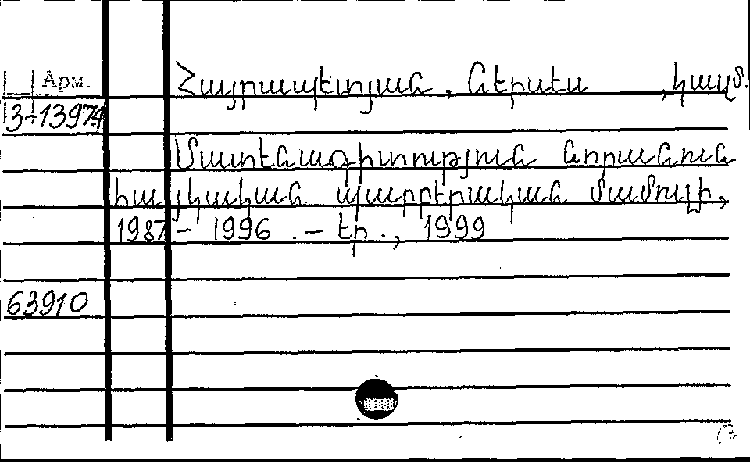 Арм.
Հայրապետյան, Ներսես, կազմ.
3-13974
Մատենագիտություն նորանուն
հայկական պարբերական մամուլի,
1987 - 1996. - Եր., 1999
63910